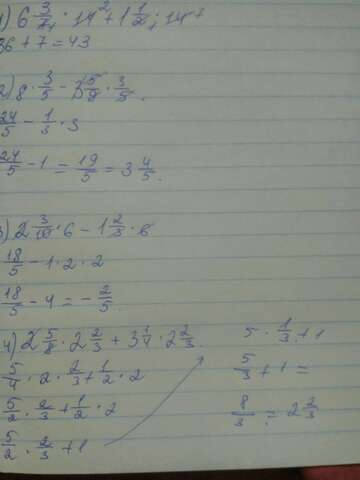 1) 6 3/7 · 14² + 1 1/2 · 14 +
86 + 7 = 43
2) 8 · 3/5 - 3 5/9 · 3/5.
24/5 - 1/3 · 3
24/5 - 1 = 19/5 = 3 4/5.
3) 2 3/10 · 6 - 1 2/3 · 6
18/5 - 1 · 2 · 2
18/5 - 4 = - 2/5.
4) 2 5/8 · 2 2/3 + 3 1/4 · 2 2/3.
5/4 · 2 · 2/3 + 1/2 · 2
5/2 · 2/3 + 1/2 · 2
5/2 · 2/3 + 1
5 · 1/3 + 1
5/3 + 1 =
8/3 = 2 2/3